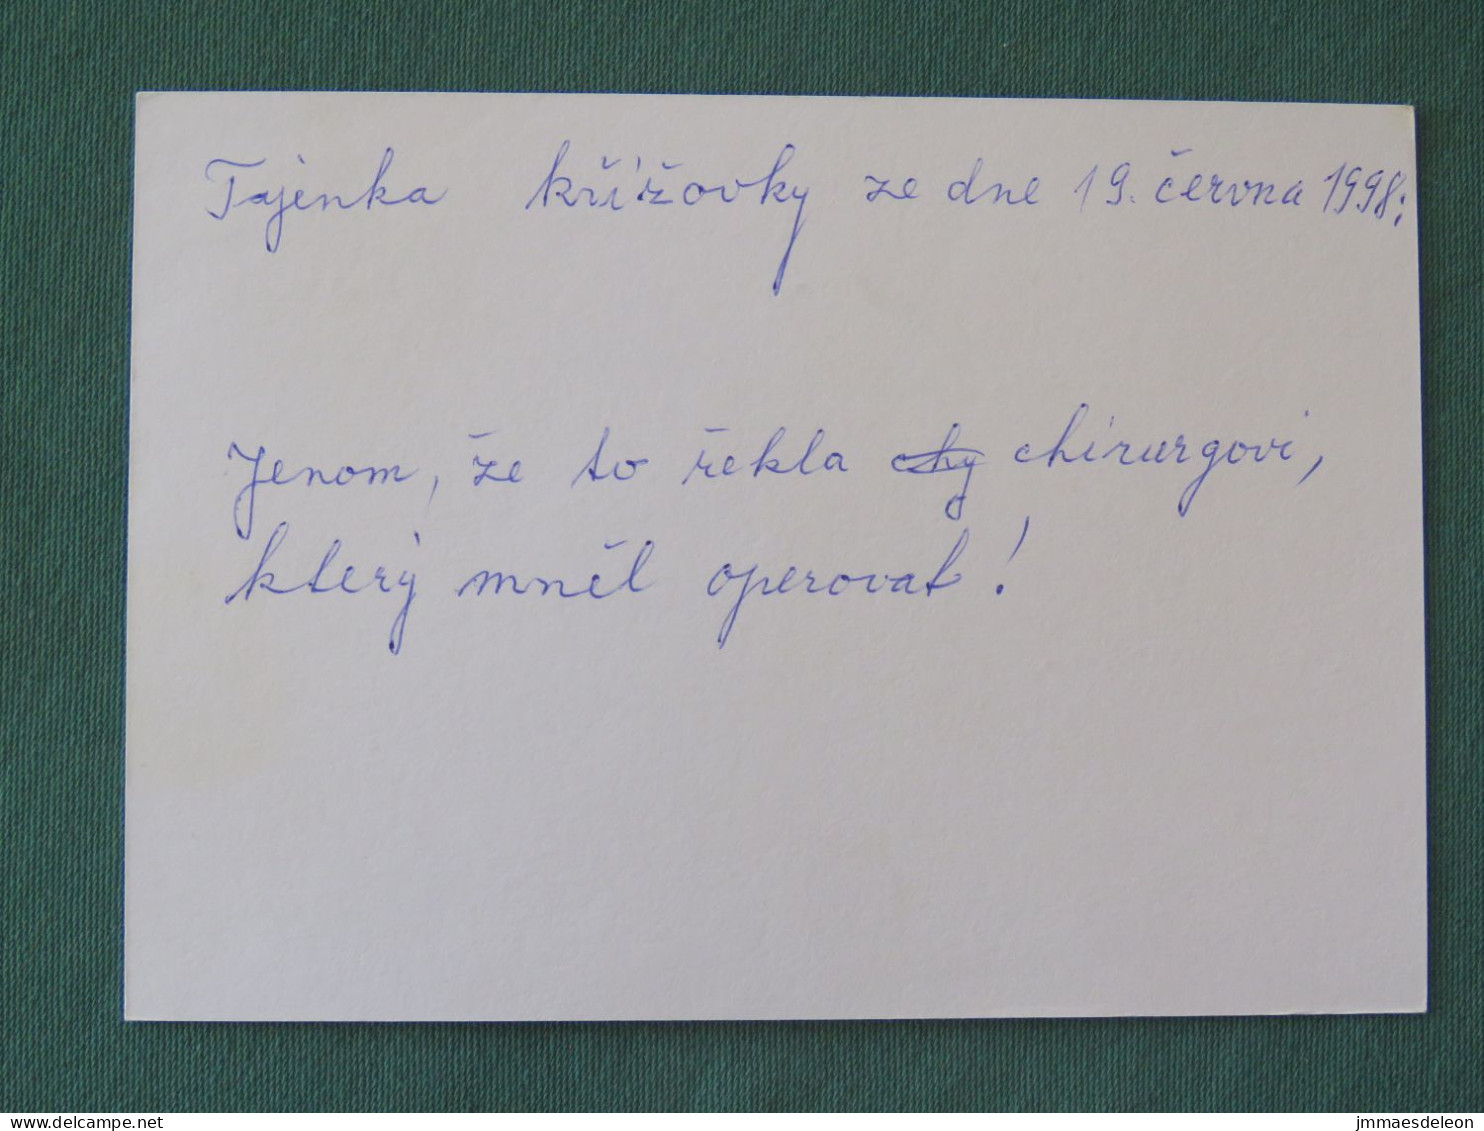 Tajenka křížovky ze dne 19. června 1998:
Jenom, že to řekla chy chirurgovi,
který mněl operovat!
delcampe.net
jmmaesdeleon